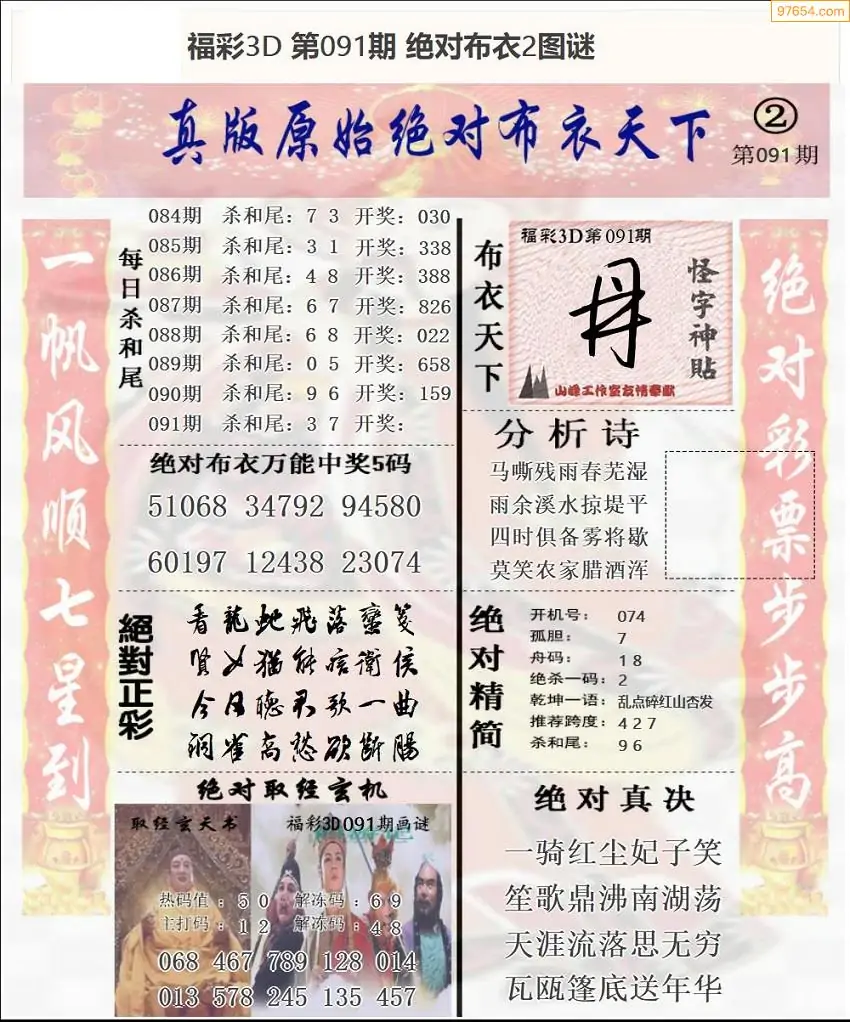 97654.com
福彩3D 第091期 绝对布衣2图谜
真版原始绝对布衣天下
②
第091期
一帆风顺七星到
每日杀和尾
084期 杀和尾：7 3 开奖：030
085期 杀和尾：3 1 开奖：338
086期 杀和尾：4 8 开奖：388
087期 杀和尾：6 7 开奖：826
088期 杀和尾：6 8 开奖：022
089期 杀和尾：0 5 开奖：658
090期 杀和尾：9 6 开奖：159
091期 杀和尾：3 7 开奖：
绝对布衣万能中奖5码
51068 34792 94580
60197 12438 23074
絕對正彩
看龍蛇飛落蠻箋
賢女猫能言衛侯
今日聽君歌一曲
洞雀高愁欲斷腸
绝对取经玄机
取经玄天书
福彩3D091期画谜
热码值：5 0 解冻码：6 9
主打码：1 2 解冻码：4 8
068 467 789 128 014
013 578 245 135 457
布衣天下
福彩3D第091期
怪字神贴
山峰工作室友情奉献
分析诗
马嘶残雨春芜湿
雨余溪水掠堤平
四时俱备雾将歇
莫笑农家腊酒浑
绝对精简
开机号： 074
孤胆： 7
舟码： 1 8
绝杀一码：2
乾坤一语：乱点碎红山杏发
推荐跨度：4 2 7
杀和尾： 9 6
绝对真决
一骑红尘妃子笑
笙歌鼎沸南湖荡
天涯流落思无穷
瓦瓯篷底送年华
绝对彩票步步高